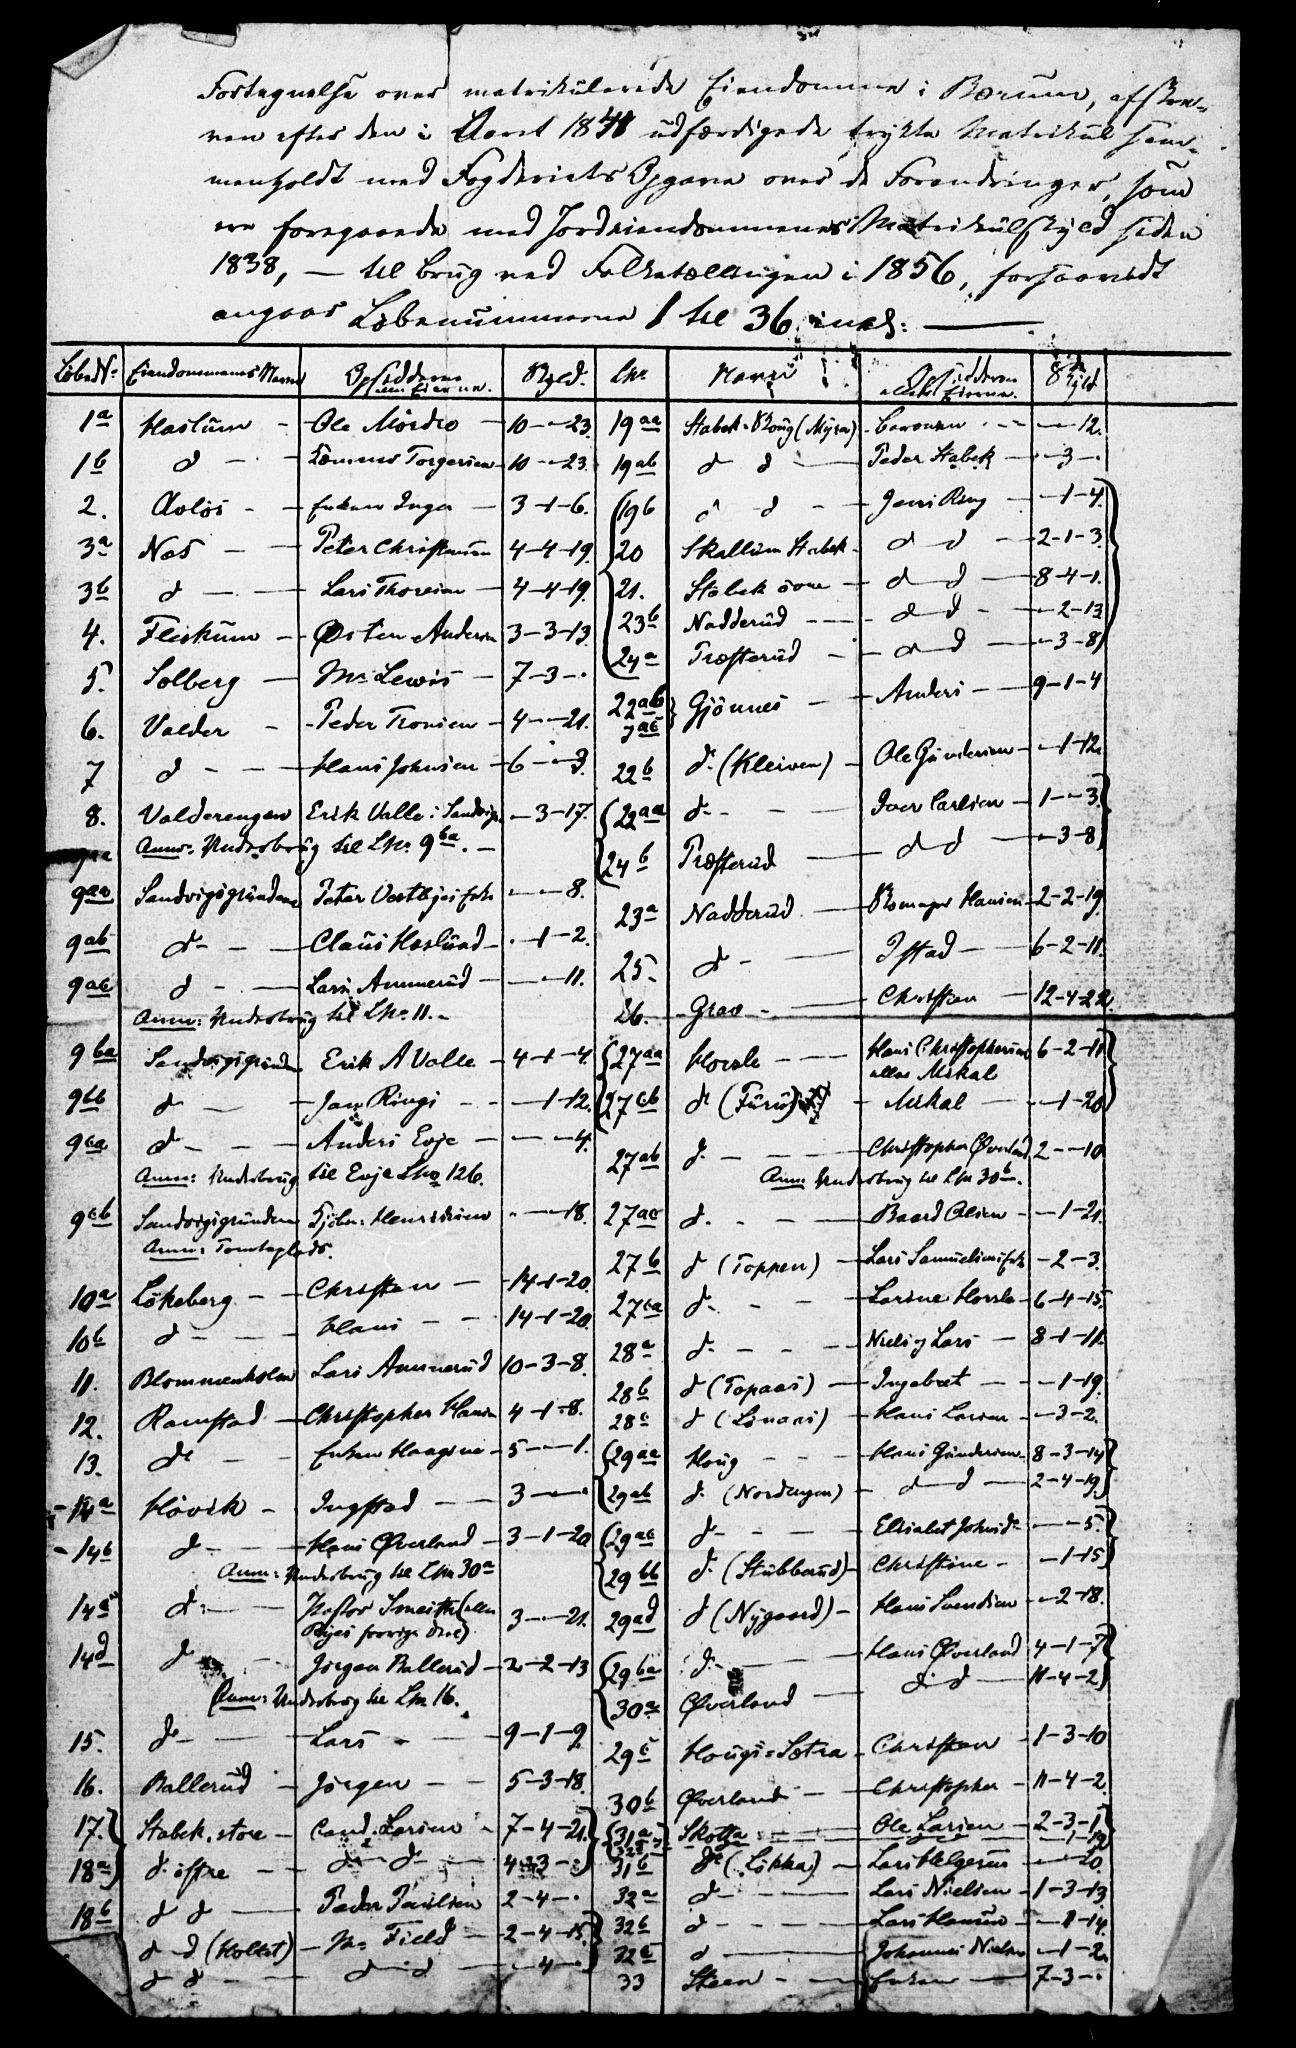 Fortegnelse over matrikulerede Eiendomme i Bærum, afskre-
ven efter den i Aaret 1838 udfærdigede trykte Matrikul sam-
menholdt med Fogderiets Opgave over de Forandringer, som
ere foregaaede med Jordeiendommenes Matrikülskyld siden
1838, — til brug ved Folketællingen i 1856, forsaavidt
angaar Løbenummerne 1 til 36 incl: —
LøbeNo Eiendommens Navn Opsidderne eller Eierne. Skyld.
1a Haslum - Ole Mördre 10 - - 23.
1b d - Tömmes Torgersen 10 - - 23.
2. Avløs - - Enken Inger - 3 - 1 - 6.
3a Næs - - Peter Christensen 4 - 4 - 19.
3b d - - Lars Thoresen 4 - 4 - 19.
4. Fleskum - Østen Andersen 3 - 3 - 13.
5. Solberg - Mr Lewis - 7 - 3 - .
6. Valder - Peder Tronsen - 4 - - 21.
7 d - - Hans Johnsen - 6 - - 3.
8. Valderengen Erik Valle i Sandvigen - 3 - 17.
Anm: Underbrug til LNo 9ba. -
9aa Sandvigsgrunden Peter Vestbyes Enke - - 8.
9ab d - - Claus Haslund - - 1 - 2.
9ac d - - Lars Ammerud - - 11.
Anm: Underbrug til LNo 11. -
9ba Sandvigsgrunden Erik A Valle - 4 - 1 - 4.
9bb d - Jan Ringi - - 1 - 12.
9ca d - - Anders Evje - - - 4.
Anm: Underbrug til Evje LNo 126.
9cb Sandvigsgrunden Töbn. Henrichsen - - 18.
Anm: Tomteplads.
10a Lökeberg - - Christen - 14 - 1 - 20.
10b d - - - Hans - - 14 - 1 - 20.
11. Blommenholm Lars Ammerud 10 - 3 - 8.
12. Ramstad - Christopher Hansen 4 - 1 - 8.
13. do - - Enken Haagine - 5 - - 1.
14a Hövik - Ingstad - - 3 - - .
14b d - - Hans Øverland - 3 - 1 - 20
Anm: Underbrug til LNo 30a
14c d: - Pastor Smith (eller Ryes forrige Deel) 3 - - 21.
14d d - Jörgen Ballerud - 2 - 2 - 13
Anm: Underbrug til LNo 16.
15. do - Lars - - 9 - 1 - 9.
16. Ballerud - Jörgen - - 5 - 3 - 18.
17. Stabek, store - Cand: Larsen - 7 - 4 - 21.
18a d: östre - - do - do - 4 - 3 - .
18b d d - Peder Paulsen 2 - 4 - .
d d (Holtet) - Mr Field - 2 - 4 - 15.
d d - - d - d - - 4 - .
LNo Navn Opsidderne eller Eierne. Skyld
19aa Stabek-Skoug (Myra) - Caroneen - - - - 12.
19ab d d - Peder Stabek - - 3 - .
19b d - d - - Jens Ring - - 1 - 4.
20 Skallum Stabek - d - d - 2 - 1 - 3.
21. Stabek övre - d d - 8 - 4 - 1.
23b Nadderud - - d d - - 2 - 13
24a Præsterud - d - d - - 3 - 8
22ab ac Gjönnes - Anders - - 9 - 1 - 4
22b do (Kleiven) - Ole Gundersen - - 1 - 12.
22aa d - - - Iver Carlsen - 1 - - 3.
24b Præsterud - d d - - 3 - 8
23a Nadderud - Romager Hansen 2 - 2 - 19.
25. d - - Istad - - 6 - 2 - 11.
26. Grav - - Christen - 12 - 4 - 22.
27aa Hosle - - Hans Christophersen eller Mikal 6 - 2 - 11
27cb do (Fürü) - Mikal - - 1 - 20
27ab d. - - - Christopher Øverland 2 - - 10
Anm: Underbrug til LNo 30b.
27ac d. - - - Baard Olsen - - 1 - 21.
27b d (Toppen) - Lars Samuelsens Enke - 2 - 3.
27ca d. - - - Larine Hosle - 6 - 4 - 15.
28a d. - - - Niels og Lars - 8 - 1 - 11.
28b d (Topaas) - Ingebret - - - 1 - 19.
28c d (Linaas) - Hans Larsen - - 3 - 2.
29aa Houg - - Hans Gundersen - 8 - 3 - 14
29ab d. (Nordengen) - d - d - 2 - 4 - 19.
29ac d - - - Elisabet Johnsdr - - 5.
29bb d. (Stübberud) - Christine - - 1 - 15
29ad d (Nygaard) - Hans Svendsen - - 2 - 18.
29ba d. - Hans Øverland 4 - 1 - 7
30a Øverland - d d - 11 - 4 - 2
29c Hougs-Sætra - Christen - 1 - 3 - 10
30b Øverland - - Christopher - 11 - 4 - 2.
31a Skotta - Ole Larsen - 2 - 3 - 1
31b do (Lökka) - Lars Helgesen - - 20.
32a d - - - Lars Nielsen - 1 - 3 - 13
32b d - - - Lars Hansen - - 11 - 14.
32c d - Johannes Nielsen - 1 - 2.
33 Steen - - Enken - 7 - 3 - .